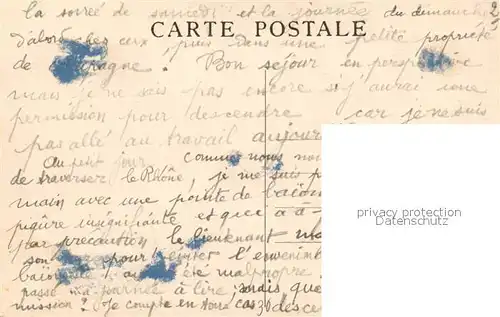 la soirée de samedi et la journée du dimanche
CARTE POSTALE
d'abord chez eux puis dans une petite propriété
de campagne! Bon séjour en perspective
mais je ne sais pas encore si j'aurai une
permission pour descendre car je ne suis
pas allé au travail aujour
Au petit jour comme nous
de traverser le Rhône, je me suis
main avec une pointe de baïon
piqûre insignifiante
par précaution le lieutenant
son pour éviter l'envenim
baïonn été malpropre.
passé ma journée à lire, mais que
mission? Je compte en tous cas descen
privacy protection
Datenschutz
www.oldthing.de